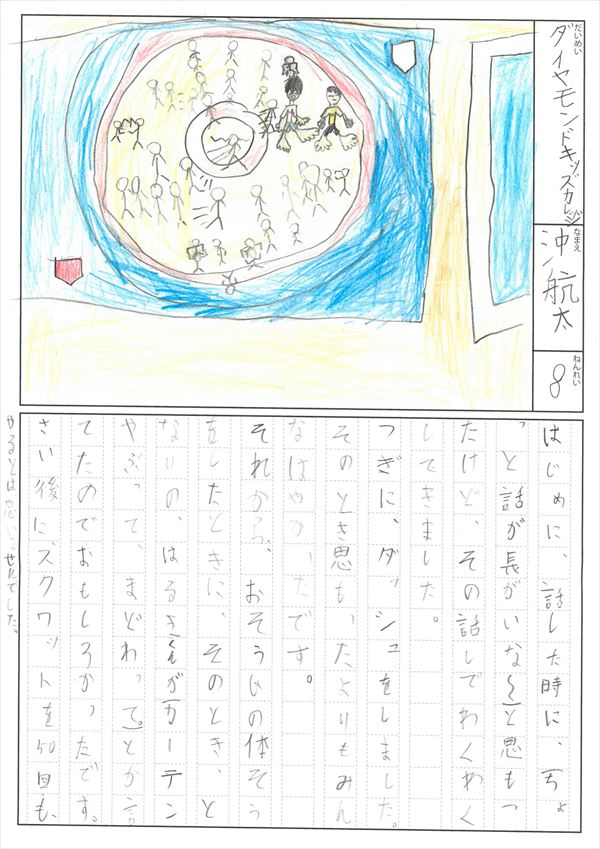 だいめい
ダイヤモンドキッズカレッジ
なまえ
沖航太
ねんれい
8
はじめに、話した時に、「ちょ
っと話が長がいな〜」と思もっ
たけど、その話しでわくわく
してきました。
つぎに、ダッシュをしました。
そのとき思もったよりもみん
なはやかったです。
それから、おそうじの体そう
をしたときに、そのとき、と
なりの、はるきくんが「カーテン
やぶって、まどわって」とか言
てたのでおもしろかったです。
さい後に、スクワットを50回も、
やるとは、思いませんでした。